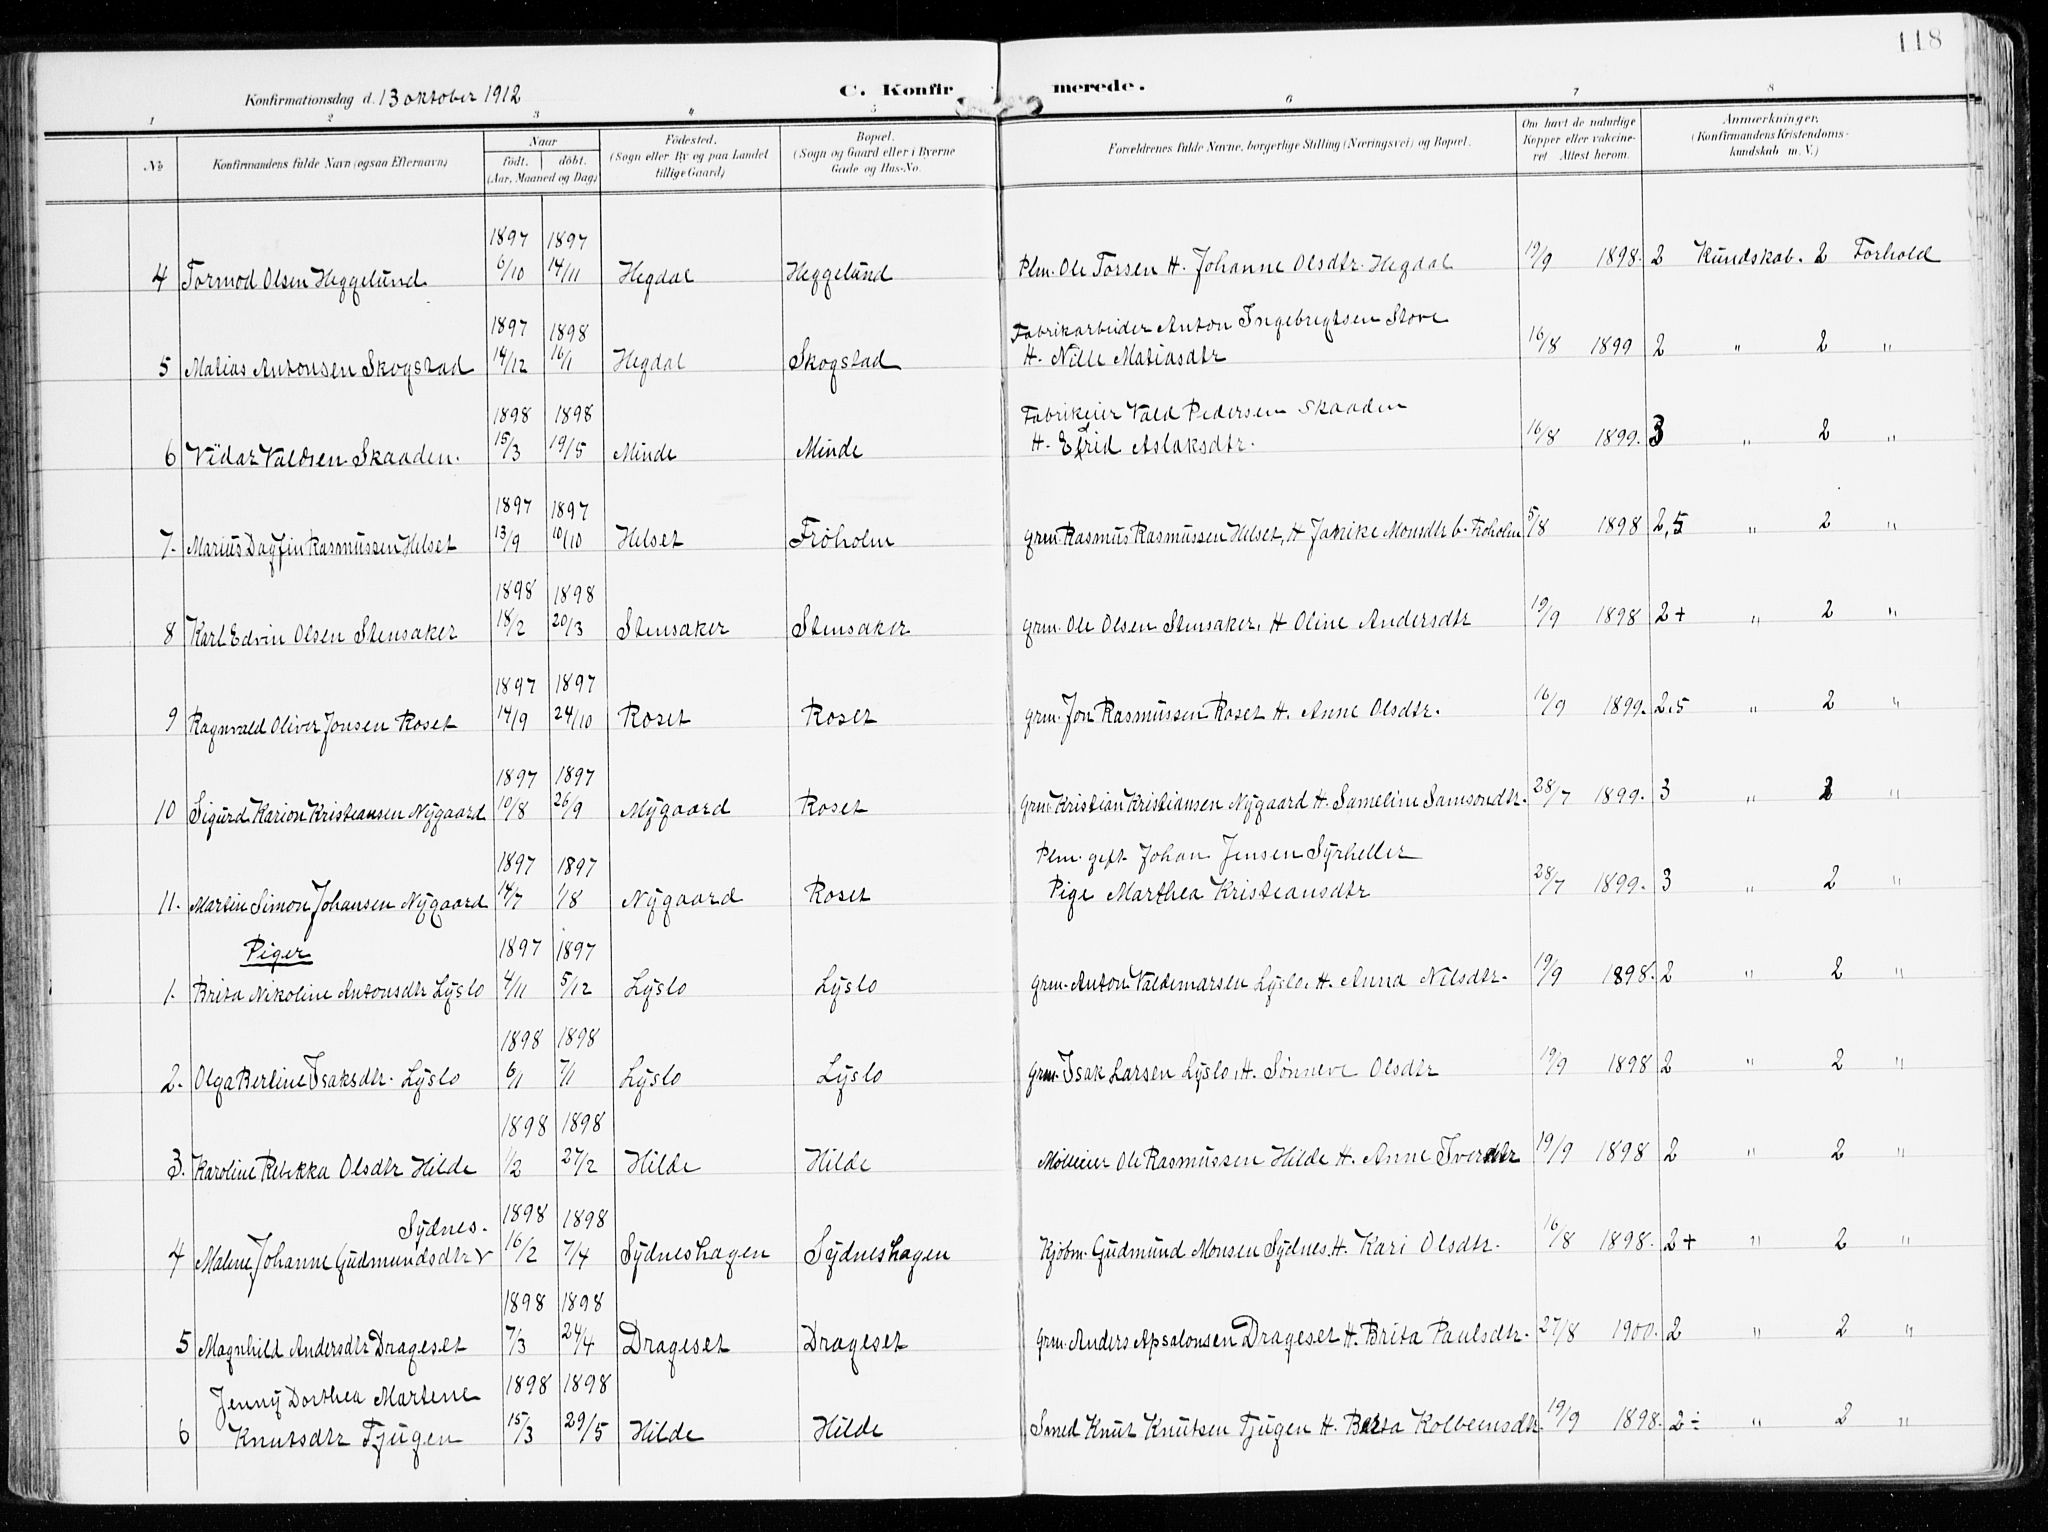 118
Konfirmationsdag d. 13 oktober 1912
C. Konfirmerede.
1 2 3 4 5 6 7 8
No
Konfirmandens fulde Navn (ogsaa Efternavn)
Naar
født. døbt.
(Aar, Maaned og Dag)
Fødested.
(Sogn eller By og paa Landet
tillige Gaard)
Bopæl.
(Sogn og Gaard eller i Byerne
Gade og Hus-No.
Forældrenes fulde Navne, borgerlige Stilling (Næringsvei) og Bopæl.
Om havt de naturlige
Kopper eller vakcine-
ret Attest herom.
Anmærkninger.
(Konfirmandens Kristendoms-
kundskab m. V.)
1897 1897
4 Tormod Olsen Heggelund 6/10 14/11 Hegdal Heggelund Plm. Ole Torsen H. Johanne Olsdtr. Hegdal 19/9 1898. 2 Kundskab. 2 Forhold
1897 1898 Fabrikarbeider Anton Ingebrigtsen Stove
5 Matias Antonsen Skogstad 14/12 16/1 Hegdal Skogstad H. Nille Matiasdtr 16/8 1899 2 " 2 "
1898 1898 Fabrikeier Vald Pedersen Skaaden
6 Vidar Valdsen Skaaden. 15/3 19/5 Minde Minde H. Elfrid Aslaksdtr. 16/8 1899. 3 " 2 "
1897 1897
7. Marius Dagfin Rasmussen Helset 13/9 10/10 Helset Frøholm grm. Rasmus Rasmussen Helset, H Janike Monsdtr b. Froholm 5/8 1898 2,5 " 2 "
1898 1898
8 Karl Edvin Olsen Stensaker 18/2 20/3 Stensaker Stensaker grm. Ole Olsen Stensaker, H Oline Andersdtr 19/9 1898 2+ " 2 "
1897 1897
9 Ragnvald Oliver Jonsen Roset 14/9 24/10 Roset Roset grm. Jon Rasmussen Roset H. Anne Olsdtr. 16/9 1899. 2,5 " 2 "
1897 1897
10 Sigurd Karion Kristiansen Nygaard 10/8 26/9 Nygaard Roset grm. Kristian Kristiansen Nygaard H. Sameline Samsondtr. 28/7 1899. 3 " 2 "
1897 1897 Plm. gift Johan Jensen Syrheller
11. Martin Simon Johansen Nygaard 14/7 1/8 Nygaard Roset Pige Marthea Kristiansdtr 28/7 1899. 3 " 2 "
Piger 1897 1897
1. Brita Nikoline Antonsdtr Lyslo 4/11 5/12 Lyslo Lyslo grm. Anton Valdemarsen Lyslo, H. Anna Nilsdtr. 19/9 1898. 2 " 2 "
1898 1898
2. Olga Berline Isaksdtr. Lyslo 6/1 7/1 Lyslo Lyslo grm. Isak Larsen Lyslo, H. Sønneve Olsdtr 19/9 1898 2 " 2 "
1898 1898
3. Karoline Rebekka Olsdtr Hilde 1/2 27/2 Hilde Hilde Mølleier Ole Rasmussen Hilde H. Anne Iversdtr 19/9 1898 2 " 2 "
Sydnes. 1898 1898
4 Malene Johanne Gudmundsdtr 16/2 7/4 Sydneshagen Sydneshagen Kjøbm. Gudmund Monsen Sydnes, H. Kari Olsdtr. 16/8 1898. 2+ " 2 "
1898 1898
5 Magnhild Andersdtr Drageset 7/3 24/4 Drageset Drageset grm. Anders Apsalonsen Drageset H. Brita Paulsdtr. 27/8 1900. 2 " 2 "
Jenny Dorthea Martene 1898 1898
6 Knutsdtr Tjugen 15/3 29/5 Hilde Hilde Smed Knut Knutsen Tjugen H. Berta Kolbeinsdtr. 19/9 1898. 2÷ " 2 "